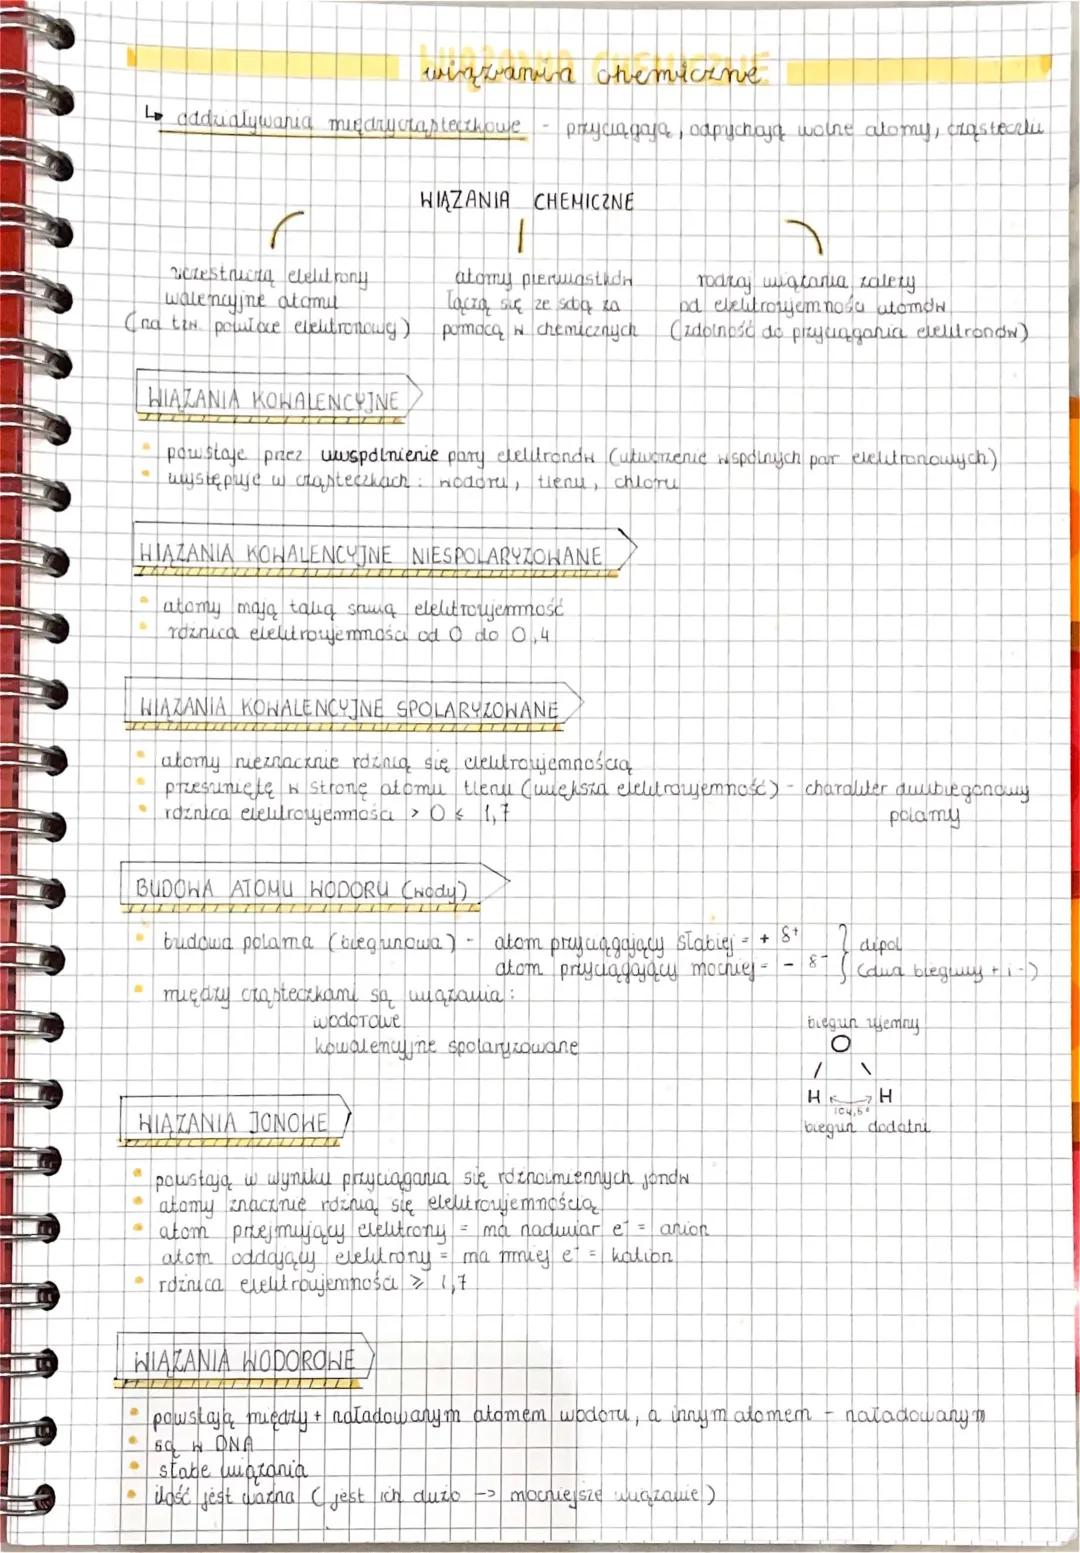 WIĄZANIA CHEMICZNE
wiązania chemiczne
↳ oddziaływania międzycząsteczkowe - przyciągają, odpychają wolne atomy, cząsteczki
WIĄZANIA CHEMICZNE
uczestniczą elektrony
walencyjne atomu
(na tzw. powłoce elektronowej)
atomy pierwiastków
łączą się ze sobą za
pomocą w chemicznych
rodzaj wiązania zależy
od elektroujemności atomów
(zdolność do przyciągania elektronów)
WIĄZANIA KOWALENCYJNE
• powstaje przez uwspólnienie pary elektronów (utworzenie wspólnych par elektronowych)
• występuje w cząsteczkach: wodoru, tlenu, chloru
WIĄZANIA KOWALENCYJNE NIESPOLARYZOWANE
• atomy mają taką samą elektroujemność
• różnica elektroujemności od 0 do 0,4
WIĄZANIA KOWALENCYJNE SPOLARYZOWANE
• atomy nieznacznie różnią się elektroujemnością
• przesunięte w stronę atomu tlenu (większa elektroujemność) - charakter dwubiegunowy
polarny
• różnica elektroujemności > 0 ≤ 1,7
BUDOWA ATOMU WODORU (wody)
• budowa polarna (biegunowa) - atom przyciągający słabiej = + δ+
atom przyciągający mocniej = - δ-
} dipol
(dwa bieguny + i -)
• między cząsteczkami są wiązania:
wodorowe
kowalencyjne spolaryzowane
biegun ujemny
O
H H
104,5°
biegun dodatni
WIĄZANIA JONOWE
• powstają w wyniku przyciągania się różnoimiennych jonów
• atomy znacznie różnią się elektroujemnością
• atom przejmujący elektrony = ma nadmiar e⁻ = anion
atom oddający elektrony = ma mniej e⁻ = kation
• różnica elektroujemności ≥ 1,7
WIĄZANIA WODOROWE
• powstają między + naładowanym atomem wodoru, a innym atomem - naładowanym
• są w DNA
• słabe wiązania
• ilość jest ważna (jest ich dużo -> mocniejsze wiązanie)